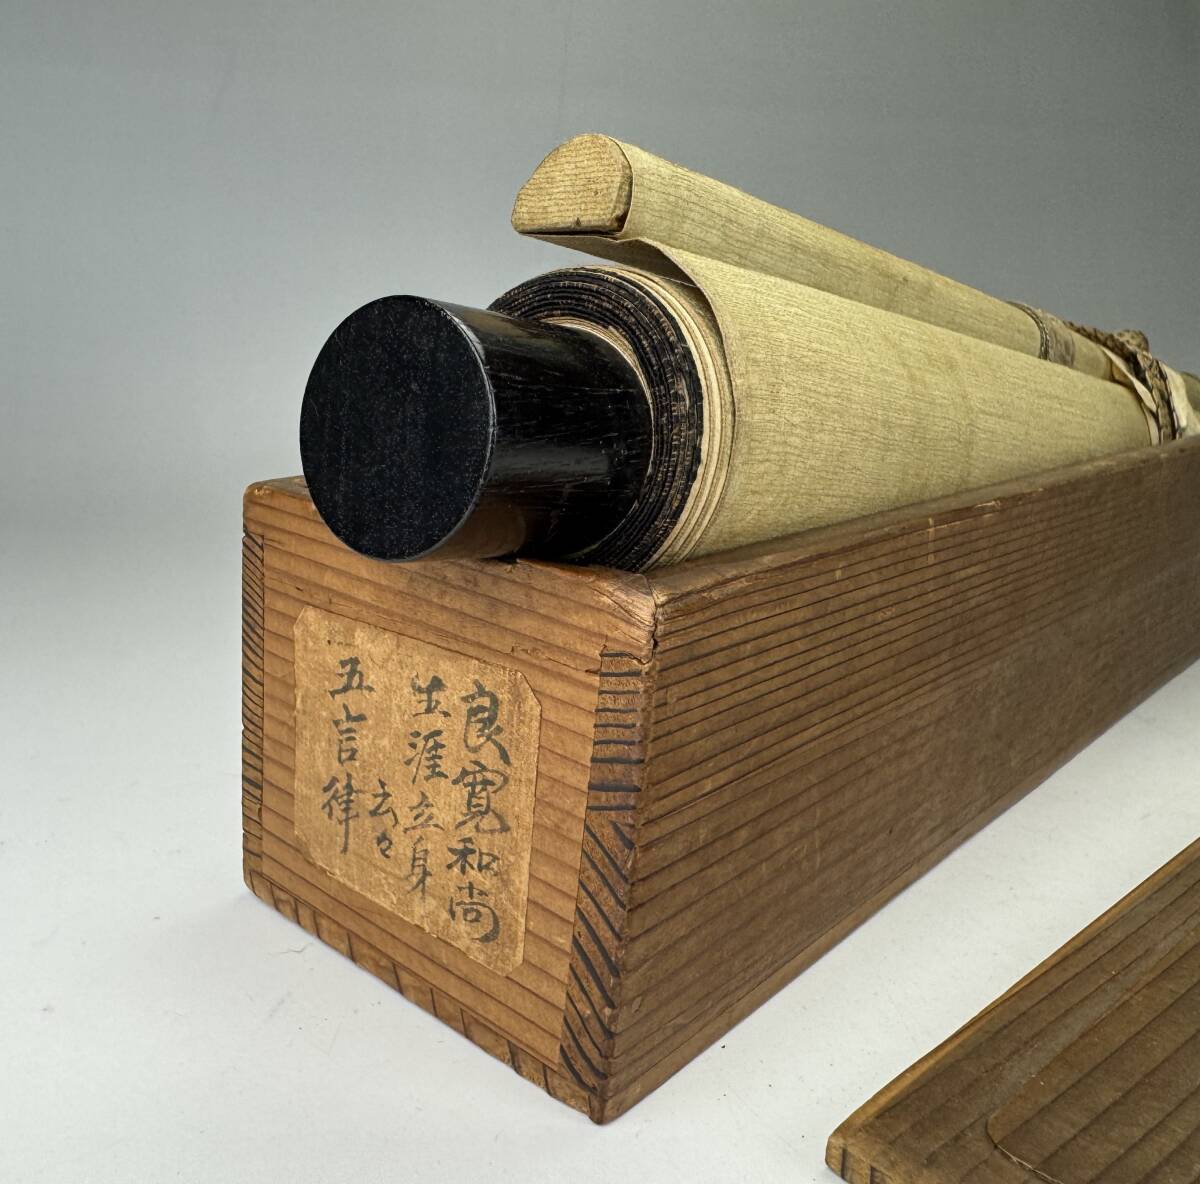 良寛和尚
生涯立身
云々
五言律